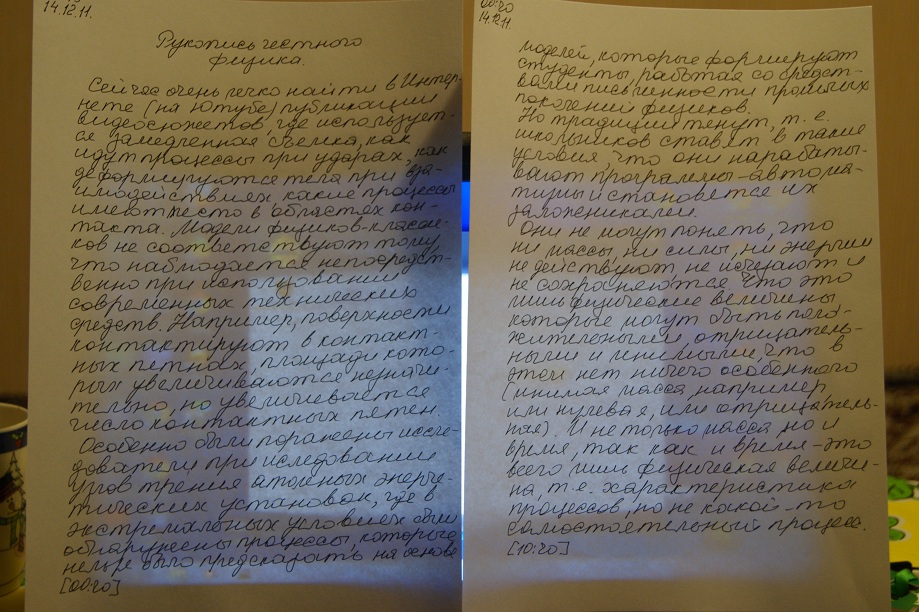 14.12.11.
Рукопись честного
физика.
Сейчас очень легко найти в Интер-
нете (на Ютубе) публикации
видеосюжетов, где использует-
ся замедленная съемка, как
идут процессы при ударах, как
деформируются тела при вза-
имодействиях, какие процессы
имеют место в областях кон-
такта. Модели физиков-класси-
ков не соответствуют тому,
что наблюдается непосредст-
венно при использовании
современных технических
средств. Например, поверхности
контактируют в контакт-
ных пятнах, площади кото-
рых увеличиваются незначи-
тельно, но увеличивается
число контактных пятен.
Особенно были поражены иссле-
дователи при иследовании
узлов трения атомных энерге-
тических установок, где в
экстремальных условиях были
обнаружены процессы, которые
нельзя было предсказать на основе
[00:20]
00:20
14.12.11.
моделей, которые формируют
студенты, работая со средст-
вами письменности прошлых
поколений физиков.
Но традиции тянут, т.е.
школьников ставят в такие
условия, что они нарабаты-
вают программы-автома-
тизмы и становятся их
заложниками.
Они не могут понять, что
ни массы, ни силы, ни энергии
не действуют, не исчезают и
не сохраняются. Что это
лишь физические величины
которые могут быть поло-
жительными, отрицатель-
ными и мнимыми, что в
этом нет ничего особенного
(мнимая масса, например
или нулевая, или отрицатель-
ная). И не только масса, но и
время, так как и время - это
всего лишь физическая величи-
на, т.е. характеристика
процессов, но не какой-то
самостоятельный процесс.
[10:20]